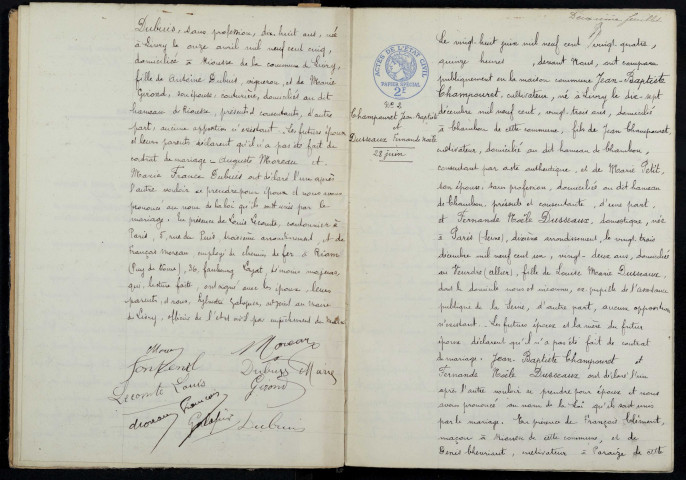 Dubuis, sans profession, dix huit ans, née
à Livry le onze avril mil neuf cent cinq,
domiciliée à Riousse de la commune de Livry,
fille de Antoine Dubuis, vigneron, et de Marie
Girond, son épouse, couturière, domiciliés au dit
hameau de Riousse, présents et consentants, d'autre
part, aucune opposition n'existant. Les futurs époux
et leurs parents déclarent qu'il n'a pas été fait de
contrat de mariage. Auguste Moreau et
Maria France Dubuis ont déclaré l'un après
l'autre vouloir se prendre pour époux et nous avons
prononcé au nom de la loi qu'ils sont unis par le
mariage. En présence de Louis Lecomte, cordonnier à
Paris, 5, rue du Puits, troisième arrondissement, et de
François Moreau employé de chemin de fer à Riom
(Puy de Dôme), 36, faubourg témoins majeurs,
qui, lecture faite, ont signé avec les époux, leurs
parents et nous, adjoint au maire
de Livry, officier de l'état civil par empêchement du Maire
Moreau
Dubuis Marie
Lecomte Louis
Girond
Moreau François
Dubuis
ACTES DE L'ÉTAT CIVIL
PAPIER SPÉCIAL
2F
N° 2
Champouret Jean Baptiste
et
Dusseaux Fernande Noële
28 juin
Douzième feuillet
Le vingt huit juin mil neuf cent vingt quatre,
quinze heures, devant Nous, ont comparu
publiquement en la maison commune Jean Baptiste
Champouret, cultivateur, né à Livry le dix-sept
décembre mil neuf cent, vingt trois ans, domicilié
à Chambon de cette commune, fils de Jean Champouret,
cultivateur, domicilié au dit hameau de Chambon,
consentant par acte authentique, et de Marie Petit,
son épouse, sans profession, domiciliée au dit hameau
de Chambon, présente et consentante, d'une part,
et Fernande Noële Dusseaux, domestique, née
à Paris (Seine), dixième arrondissement, le vingt trois
décembre mil neuf cent un, vingt-deux ans, domiciliée
au Veurdre (Allier), fille de Louise Marie Dusseaux,
dont le domicile nous est inconnu, ex pupille de l'assistance
publique de la Seine, d'autre part, aucune opposition
n'existant. Les futurs époux et la mère du futur
époux déclarent qu'il n'a pas été fait de contrat
de mariage. Jean Baptiste Champouret et
Fernande Noële Dusseaux ont déclaré l'un
après l'autre vouloir se prendre pour époux et nous
avons prononcé au nom de la loi qu'ils sont unis
par le mariage. En présence de François Clément,
maçon à Riousse de cette commune, et de
Denis Cheuriant, cultivateur à Paraize de cette